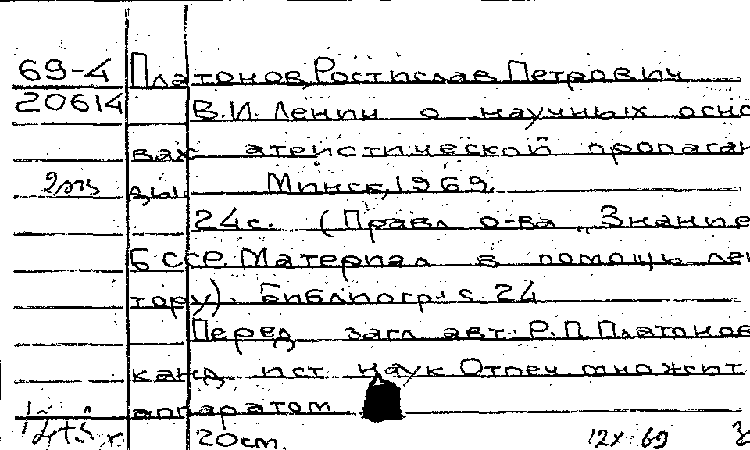 69-4 Платонов, Ростислав Петрович
20614 В.И. Ленин о научных осно
вах атеистической пропаган
2 экз ды. Минск, 1969.
24с. (Правл о-ва „Знание
БССР. Материал в помощь лек
тору). Библиогр: с 24
Перед загл авт: Р.П. Платонов
канд ист наук Отпеч множит
аппаратом
20cm. 12X 69